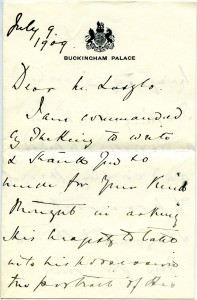 July 9.
1909.
BUCKINGHAM PALACE
Dear Mr. Laszlo.
I am commanded
by the King to write
& thank you so
much for your kind
thought in asking
His Majesty to take
into his possession
the portrait of His